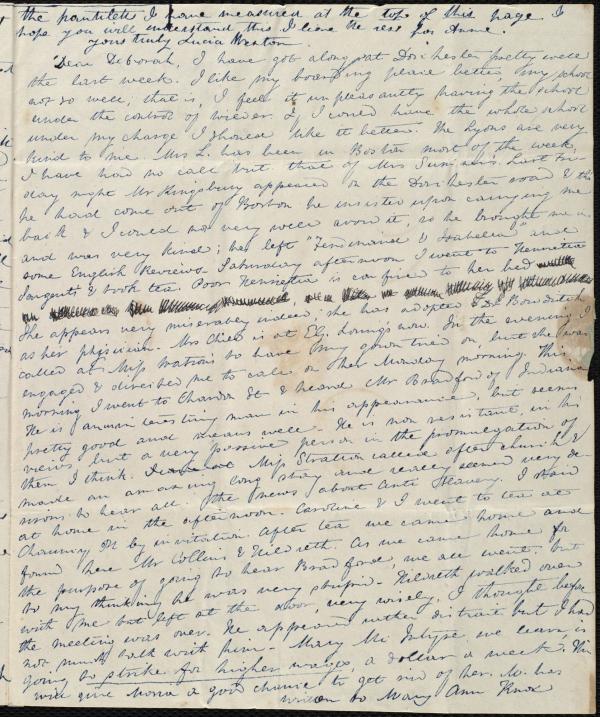 the pantilets I have measured at the top of this page I
hope you will understand this I leave the rest for Anne.
Yours truly Lucia Weston.
Dear Deborah, I have got along at Dorchester pretty well
the last week. I like my boarding place better, my school
not so well, that is, I feel it unpleasantly having the school
under the control of If I could have the whole school
under my charge I should like it better. The Lyons are very
kind to me. Mrs L. has been in Boston most of the week.
I have had no call but that of Mrs Sumner's. Last Fri-
day night Mr Kingsbury appeared on the Dorchester road & tho
he had come out of Boston he insisted upon carrying me
back & I could not very well avoid it, so he brought me in
and was very kind; he left "Ferdinand & Isabella" and
some English Reviews. Saturday afternoon I went to Henrietta
Sargents & took tea. Poor Henrietta is confined to her bed
She appears very miserably indeed; she has adopted Dr Bowditch
as her physician. Mrs Child is at E. G. Loring's now. In the evening I
called at Miss Watson's to have my gown tried on, but she was
engaged & directed me to call on her Monday morning. This
morning I went to Chardon St & heard Mr Bradford of Indiana
He is an uninteresting man in his appearance, but seems
pretty good and means well. He is non resistant, in his
views, but a very passive person in the promulgation of
them I think. Miss Stratton called after church &
made an amazing long stay and really seemed very de-
sirous to hear all the news about Anti Slavery. I staid
at home in the afternoon. Caroline & I went to tea at
Chauncy St by invitation. After tea we came home and
found here Mr Collins & Hildreth. As we came home for
the purpose of going to hear Bradford we all went, but
to my thinking he was very stupid. Hildreth walked over
with me but left at the door, very wisely, I thought before
the meeting was over. He appeared rather distrait but I had
not much talk with him. Mary we learn, is
going to strike for higher wages, a dollar a week. This
will give a good chance to get rid of her. M. has
written to Mary Ann Knox